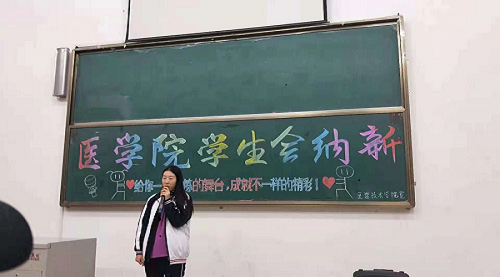 医学院学生会纳新
给你一 炼的舞台,成就不一样的精彩!